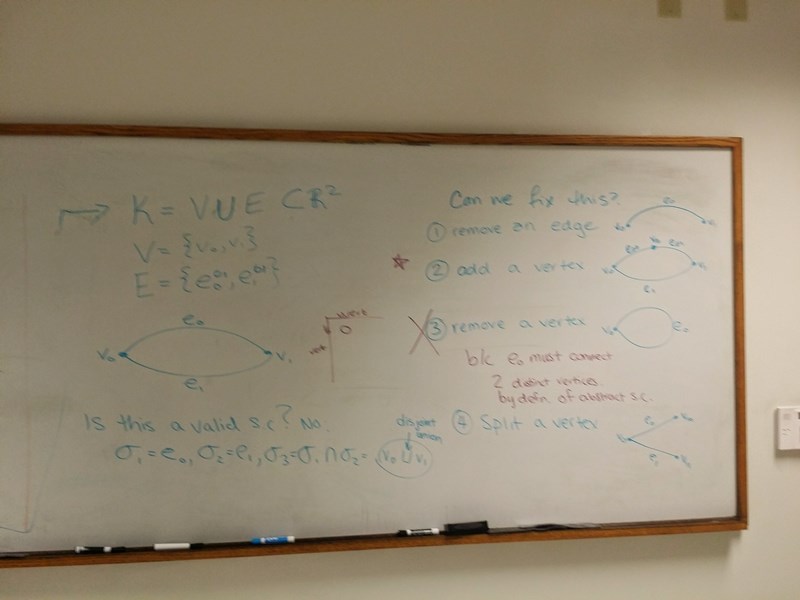 K = V ∪ E ⊂ ℝ²
V = {v₀, v₁}
E = {e₀⁰¹, e₁⁰¹}
e₀
v₀ v₁
e₁
O
Is this a valid s.c? No.
disjoint
union
σ₁ = e₀, σ₂ = e₁, σ₃ = σ₁ ∩ σ₂ = v₀ ⊔ v₁
Can we fix this?
① remove an edge
e₀
v₀ v₁
② add a vertex
v₀ v₁
e₁
③ remove a vertex
v₀ e₀
b/c e₀ must connect
2 distinct vertices
by defn. of abstract s.c.
④ Split a vertex
e₀
v₀
e₁